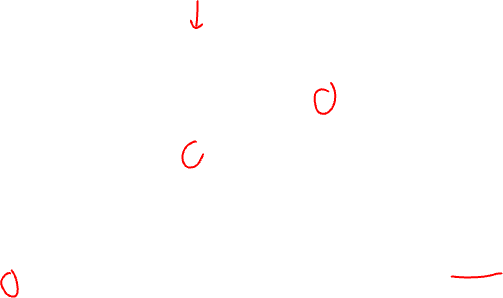 ↓
O
C
O —